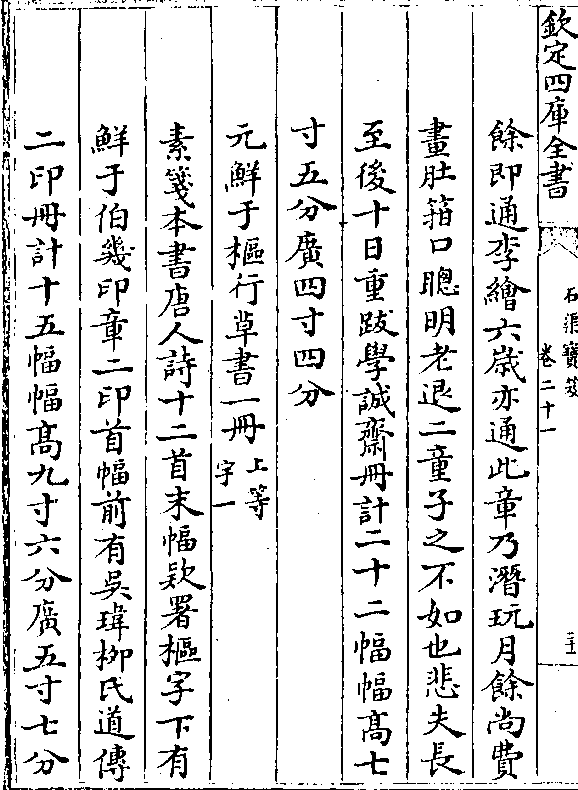 欽定四庫全書
石渠寶笈
卷二十一
餘即通李繪六歲亦通此章乃潛玩月餘尚費
畫肚箝口聰明老退二童子之不如也悲夫長
至後十日重跋學誠齋冊計二十二幅幅髙七
寸五分廣四寸四分
元鮮于樞行草書一冊上等
字一
素箋本書唐人詩十二首末幅欵署樞字下有
鮮于伯幾印章二印首幅前有吳瑋栁氏道傳
二印冊計十五幅幅髙九寸六分廣五寸七分